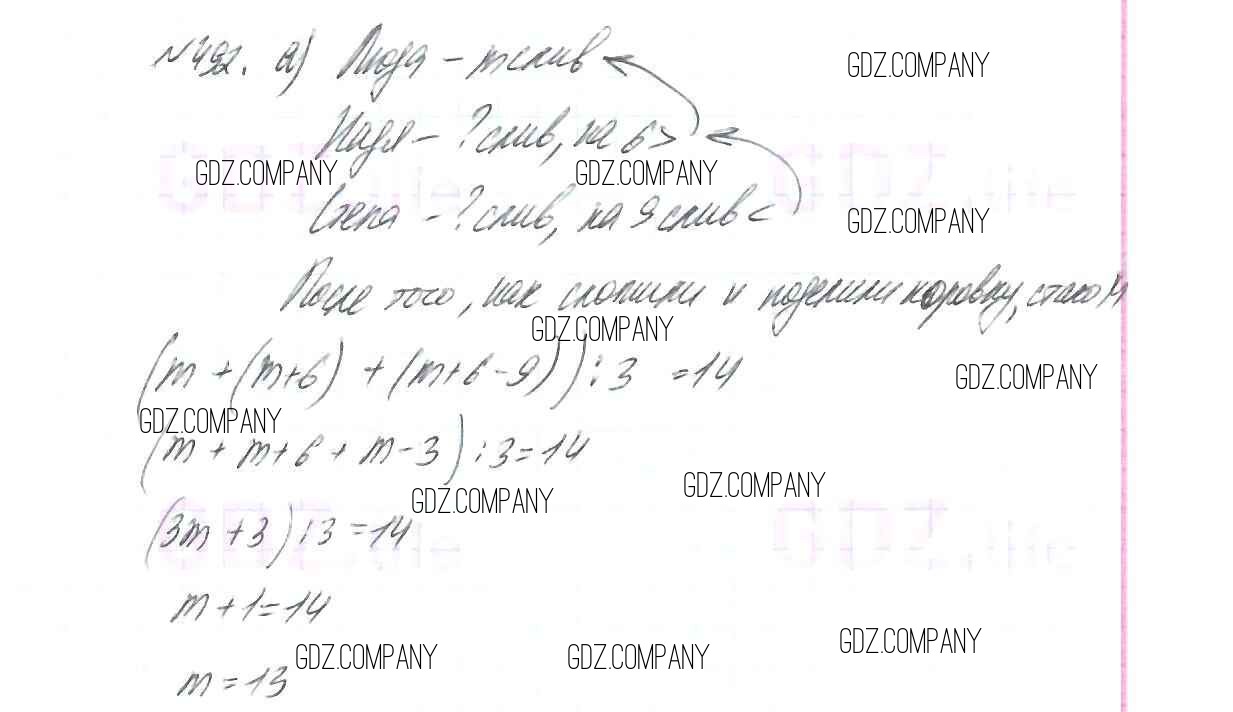 №492. а) Люда – m слив
Надя – ? слив, на 6 >
GDZ.COMPANY
GDZ.COMPANY
GDZ.COMPANY
– ? слив, на 9 слив <
GDZ.COMPANY
После того, как сложили и поделили поровну, стало 14
GDZ.COMPANY
(m + (m+6) + (m+6-9)) : 3 = 14
GDZ.COMPANY
GDZ.COMPANY
(m + m+6 + m-3) : 3 = 14
GDZ.COMPANY
GDZ.COMPANY
(3m + 3) : 3 = 14
m + 1 = 14
GDZ.COMPANY
GDZ.COMPANY
GDZ.COMPANY
m = 13